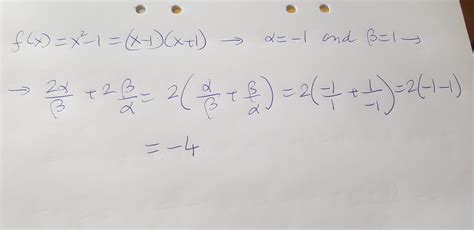 f(x) = x² - 1 = (x-1)(x+1) → α = -1 and β = 1 →
→ 2α/β + 2β/α = 2(α/β + β/α) = 2(-1/1 + 1/-1) = 2(-1-1)
= -4